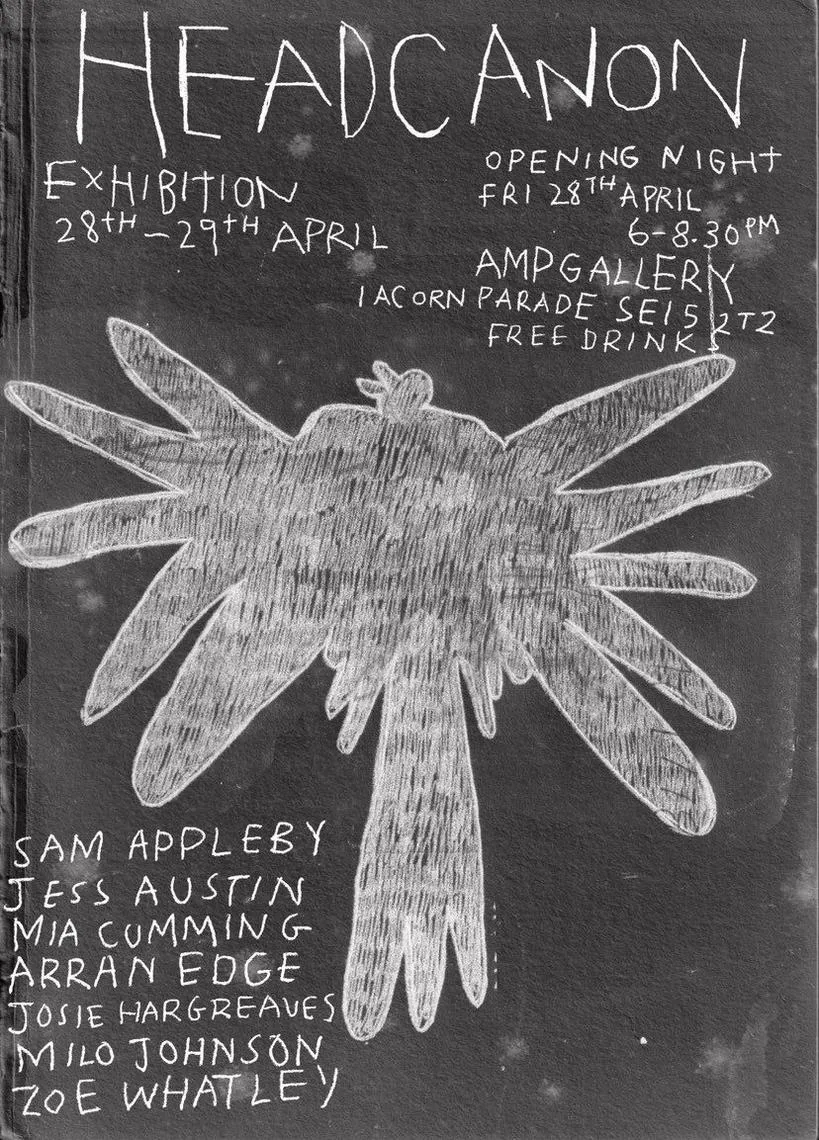 HEADCANON
EXHIBITION
28TH-29TH APRIL
OPENING NIGHT
FRI 28TH APRIL
6-8.30PM
AMP GALLERY
1 ACORN PARADE SE15 2TZ
FREE DRINKS
SAM APPLEBY
JESS AUSTIN
MIA CUMMING
ARRAN EDGE
JOSIE HARGREAVES
MILO JOHNSON
ZOE WHATLEY